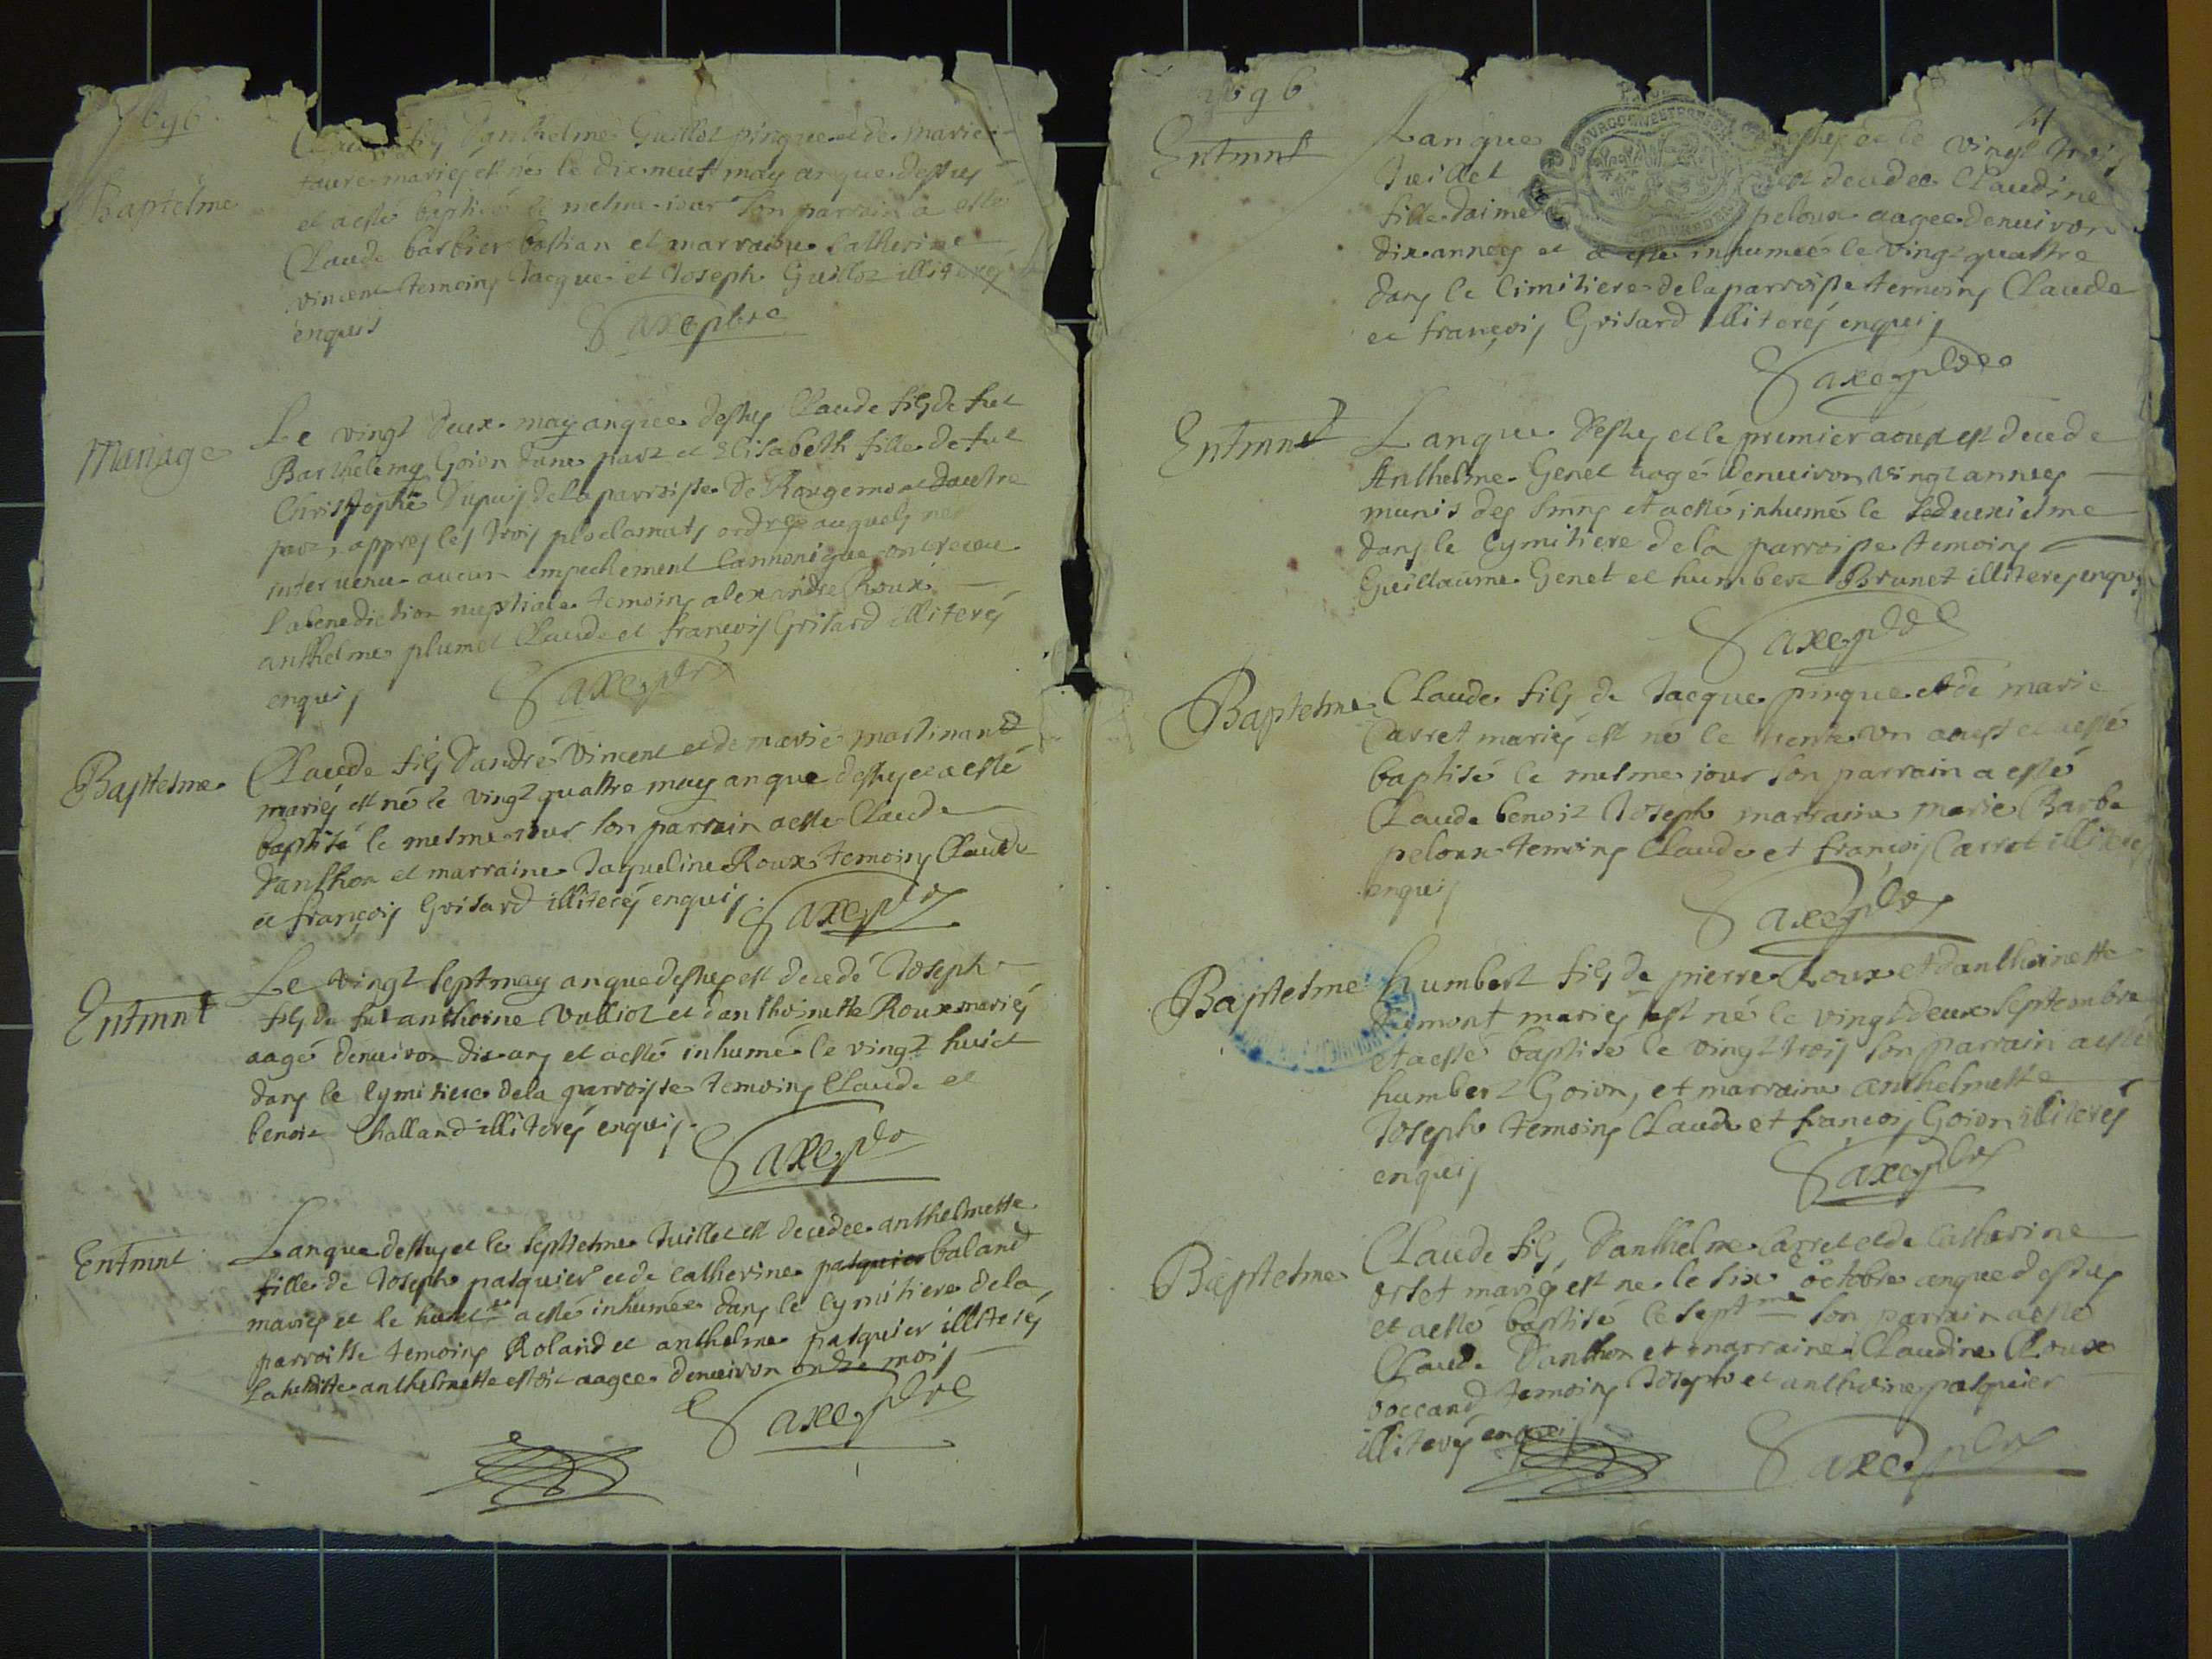 1696
Baptelme
fils d'anthelme Guillot pinque et de marie
faure mariés est né le dix neuf may an que dessus
et a esté baptisé le mesme jour son parrain a esté
Claude barbier bastian et marraine Catherine
vincent temoins Jacque et Joseph Guillot illiterés
enquis
Saxe ptre
Mariage
Le vingt deux may an que dessus Claude fils de fut
Barthelemy Goion d'une part et Elisabeth fille de fut
Christophe Dupuis de la parroisse de Rougemont d'autre
part, appres les trois proclamats
intervenu aucun empechement Cannonique ont receu
la benediction nuptiale temoins alexandre Roux
anthelme plumet Claude et françois Grisard illiterés
enquis
Saxe ptre
Baptesme
Claude fils d'andré Vincent et de marie martinand
mariés est né le vingt quattre may an que dessus et a esté
baptisé le mesme jour son parrain a esté Claude
d'anthon et marraine Jaqueline Roux temoins Claude
et françois Grisard illiterés enquis.
Saxe ptre
Entmnt
Le vingt sept may an que dessus est decedé Joseph
fils de fut anthoine Vulliot et d'anthoinette Roux mariés
aagé denuiron dix ans et a esté inhumé le vingt huict
dans le cymitiere de la parroisse temoins Claude et
benoit Challand illiterés enquis.
Saxe ptre
Entmnt
L'an que dessus et le septiesme Juillet est decedee anthelmette
fille de Joseph pasquier et de Catherine pasquier baland
mariés et le huict a esté inhumée dans le cymitiere de la
parroisse temoins Roland et anthelme pasquier illiterés
laheditte anthelmette estoit aagee denuiron onze mois
Saxe ptre
1696
21
Entmnt
L'an que
et le vingt trois
Juillet
est decedee Claudine
fille d'aime
peloux aagee denuiron
dix annees et a esté inhumeé le vingt quattre
dans le Cimitiere de la parroisse temoins Claude
et françois Grisard illiterés enquis
Saxe ptre
Entmnt
L'an que dessus et le premier aoust est decede
Anthelme Genet aagé denuiron vingt annees
munis des Smns et a esté inhumé le deuxiesme
dans le Cymitiere de la parroisse temoins
Guillaume Genet et humbert Brunet illiterés enquis
Saxe ptre
Baptesme
Claude fils de Jacque pinque et de marie
Carret mariés est né le trente un aoust et a esté
baptisé le mesme jour son parrain a esté
Claude benoit Joseph marraine marie Barbe
peloux temoins Claude et françois Carret illiterés
enquis
Saxe ptre
Baptesme
humbert fils de pierre Roux et d'anthoinette
mariés est né le vingt deux septembre
et a esté baptisé le vingt trois son parrain a esté
humbert Goion, et marraine anthelmette
Joseph temoins Claude et françois Goion illiterés
enquis
Saxe ptre
Baptesme
Claude fils, d'anthelme Carret et de Catherine
orset mariés est né le six octobre an que dessus
et a esté baptisé le septme son parrain a esté
Claude d'anthon et marraine Claudine Roux
boccand temoins Joseph et anthoine pasquier
illiterés enquis
Saxe ptre